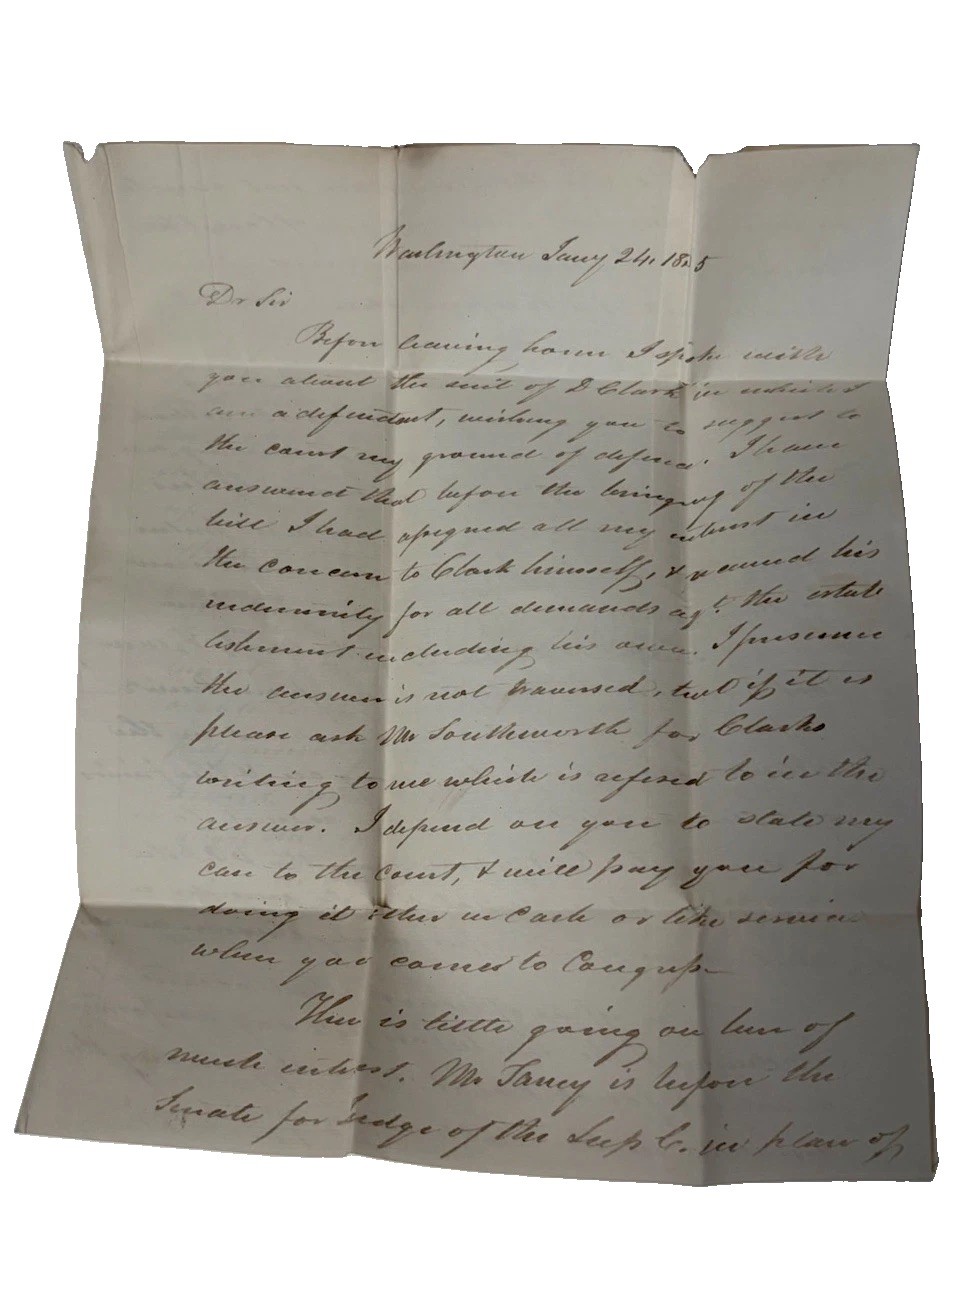 Washington Jany 24. 1835
Dr Sir
Before leaving home I spoke with
you about the suit of D Clark in which I
am a defendant, wishing you to suggest to
the court my ground of defence. I have
answered that before the bringing of the
bill I had assigned all my interest in
the concern to Clark himself, & received his
indemnity for all demands agt. the estab
lishment including his own. I presume
the answer is not traversed, but if it is
please ask Mr Southworth for Clarks
writing to me which is refered to in the
answer. I depend on you to state my
case to the court, & will pay you for
doing it either in cash or like service
when you come to Congress—
There is little going on here of
much interest. Mr Taney is before the
Senate for Judge of the Sup C. in place of